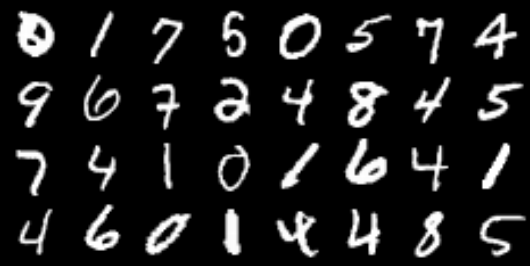 0 1 7 5 0 5 7 4
9 6 7 2 4 8 4 5
7 4 1 0 1 6 4 1
4 6 0 1 4 4 8 5